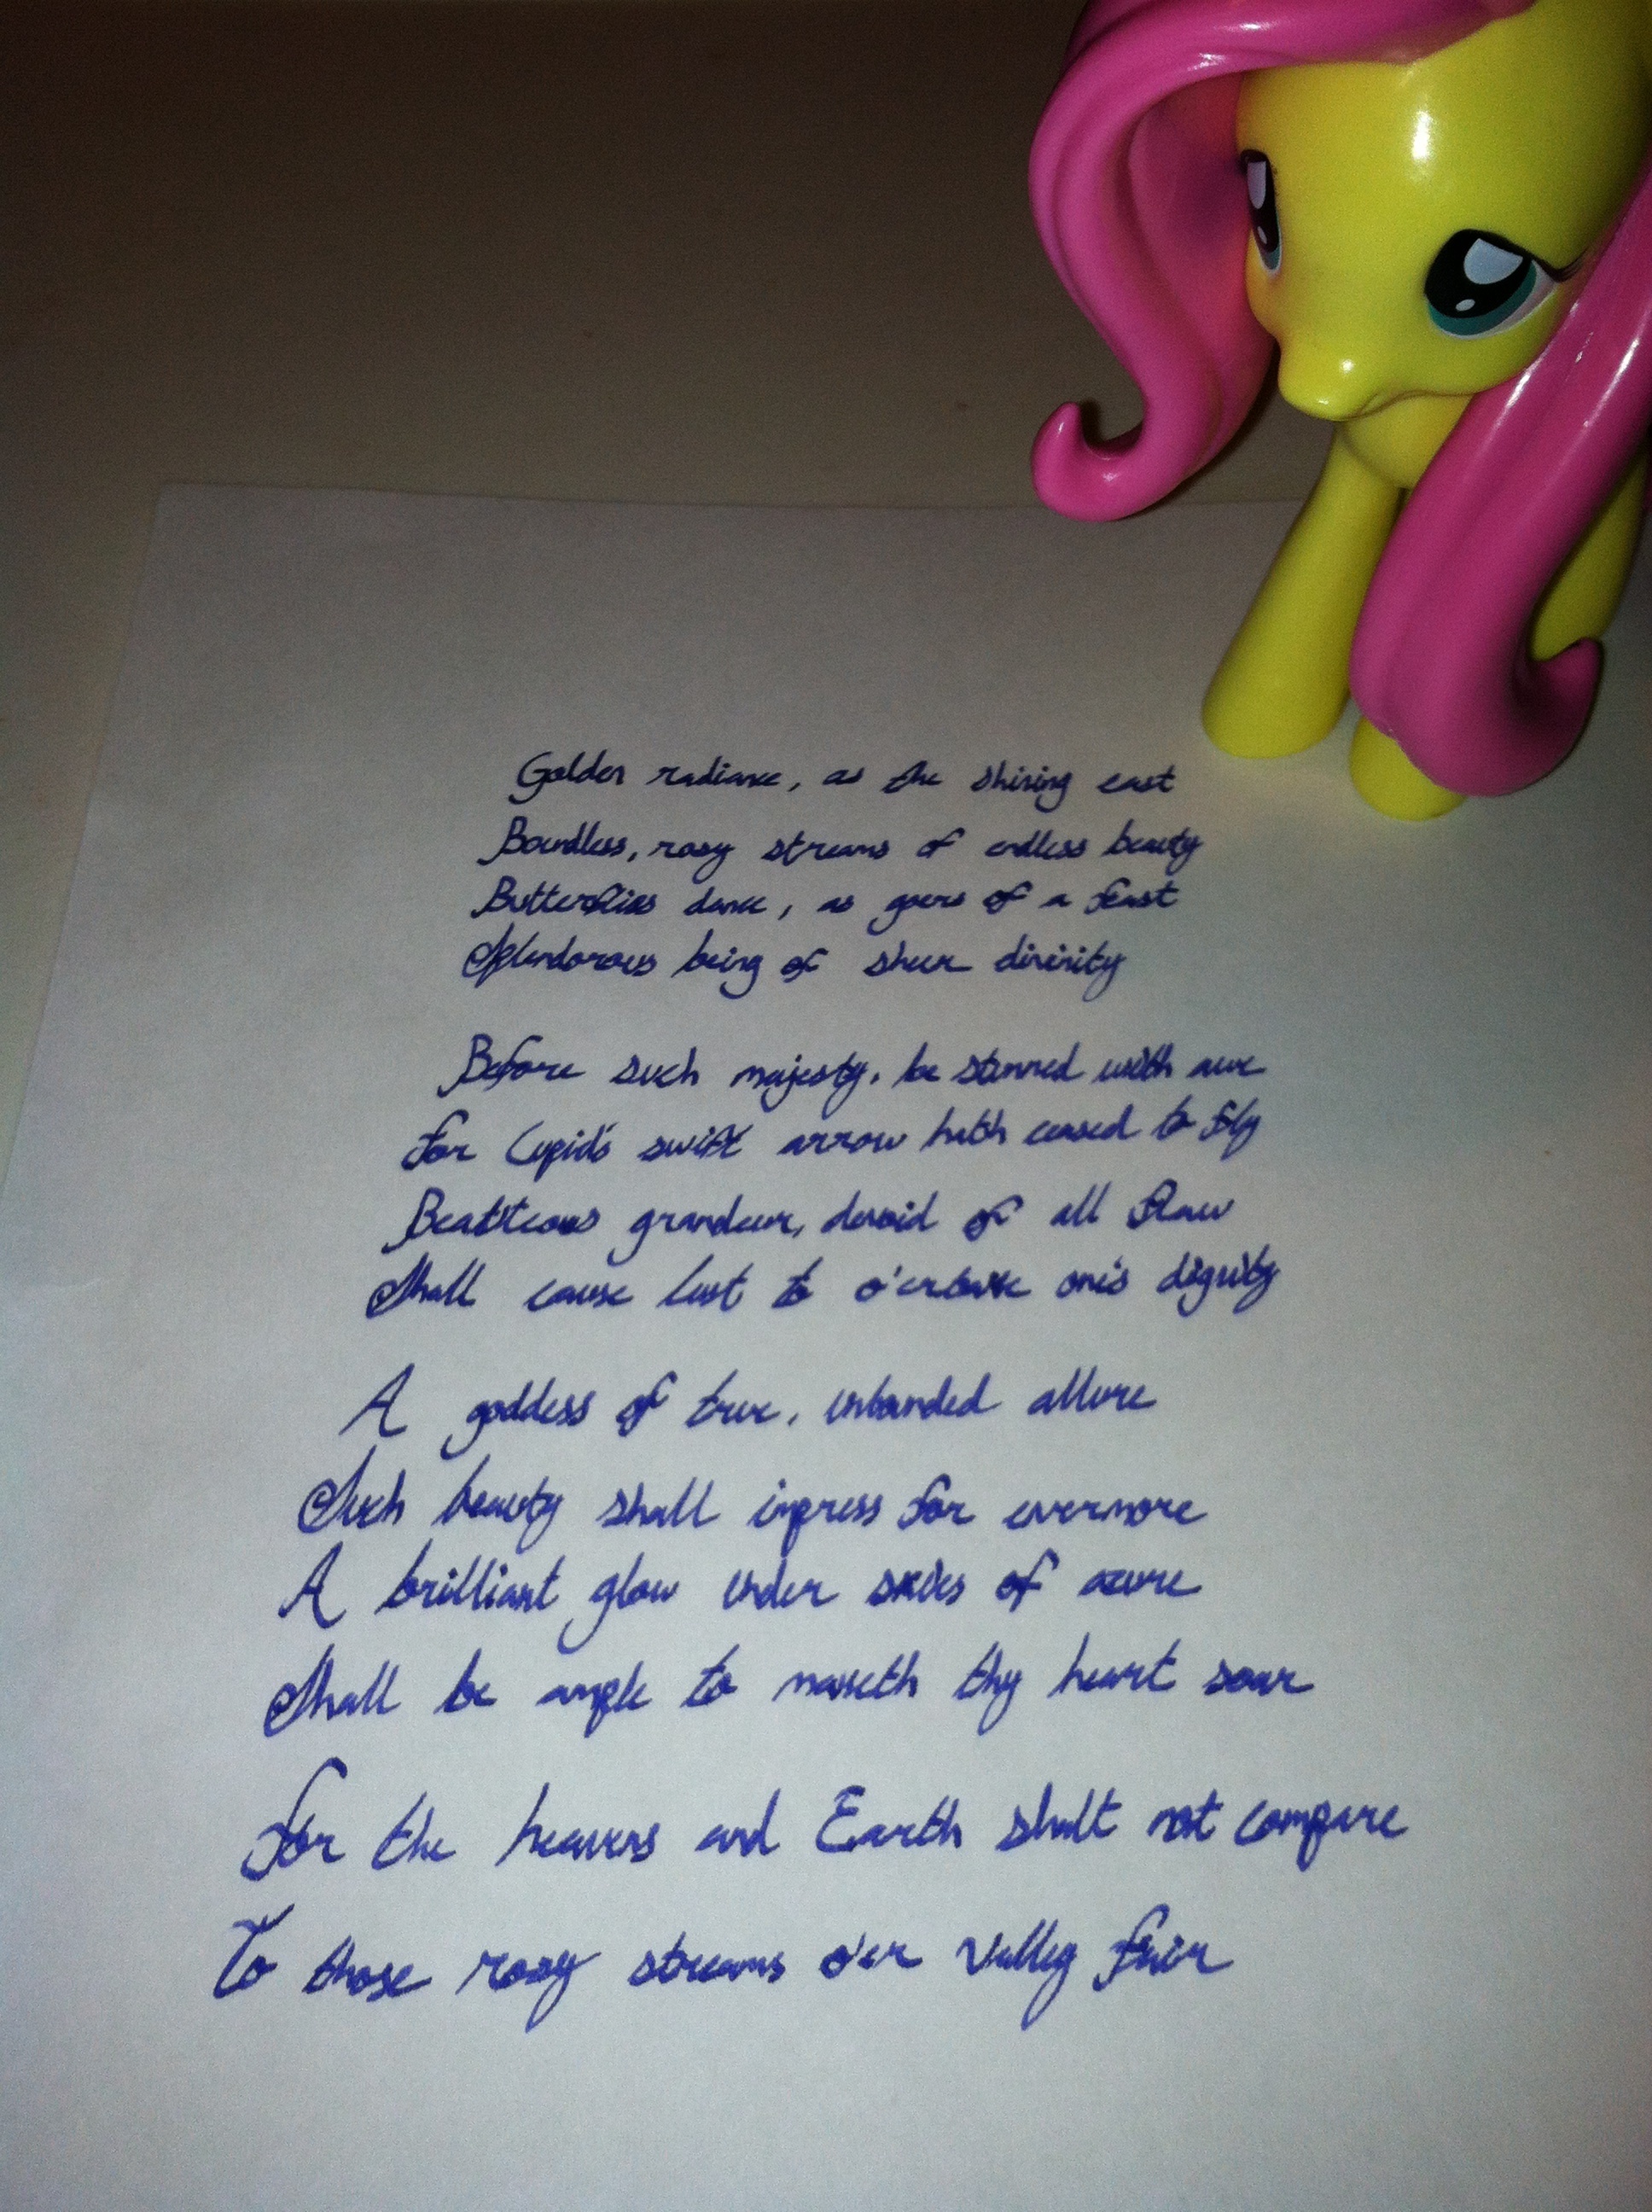 Golden radiance, as the shining east
Boundless, rosy streams of endless beauty
Butterflies dance, as goers of a feast
Splendorous being of sheer divinity
Before such majesty, be stunned with awe
For Cupid's swift arrow hath ceased to fly
Beatteous grandeur, devoid of all flaw
Shall cause lust to o'ertake one's dignity
A goddess of true, unbounded allure
Such beauty shall impress for evermore
A brilliant glow under skies of azure
Shall be ample to maketh thy heart soar
For the heavens and Earth shalt not compare
To those rosy streams o'er Valley fair